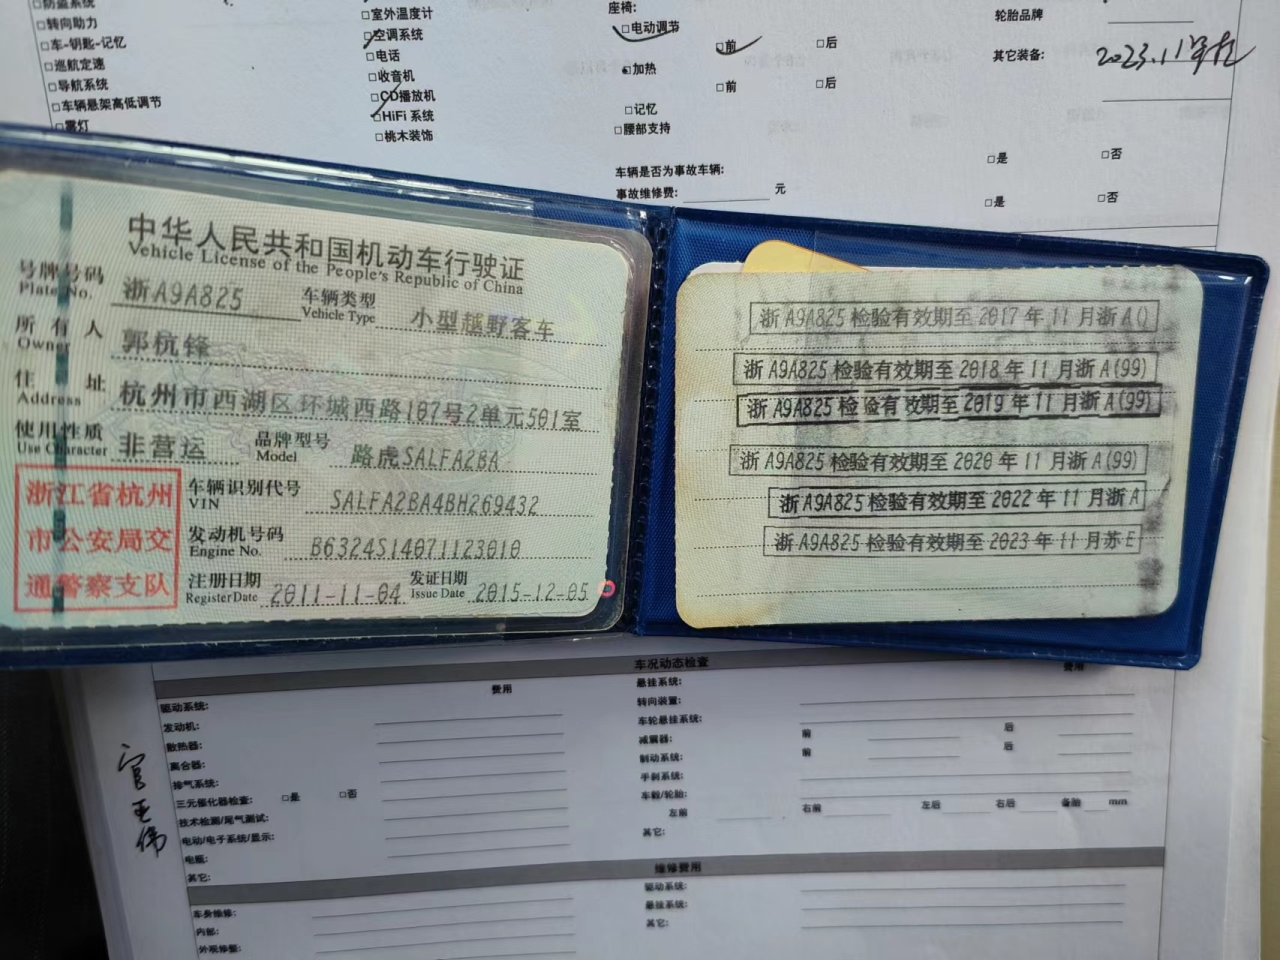 □防盗系统
□转向助力
□车-钥匙-记忆
□巡航定速
□导航系统
□车辆悬架高低调节
□雾灯
□室外温度计
□空调系统
□电话
□收音机
□CD播放机
□HiFi 系统
□桃木装饰
座椅:
□电动调节
□前 □后
□加热
□前 □后
□记忆
□腰部支持
车辆是否为事故车辆: □是 □否
事故维修费: 元 □是 □否
轮胎品牌
其它装备:
2023.11
中华人民共和国机动车行驶证
Vehicle License of the People's Republic of China
号牌号码 浙A9A825 车辆类型 小型越野客车
Plate No. Vehicle Type
所有人 郭杭锋
Owner
住址 杭州市西湖区环城西路107号2单元501室
Address
使用性质 非营运 品牌型号 路虎SALFA2BA
Use Character Model
浙江省杭州
市公安局交
通警察支队
车辆识别代号 SALFA2BA4BH269432
VIN
发动机号码 B6324S14071123010
Engine No.
注册日期 2011-11-04 发证日期 2015-12-05
Register Date Issue Date
浙A9A825检验有效期至2017年11月浙A()
浙A9A825检验有效期至2018年11月浙A(99)
浙A9A825检验有效期至2019年11月浙A(99)
浙A9A825检验有效期至2020年11月浙A(99)
浙A9A825检验有效期至2022年11月浙A
浙A9A825检验有效期至2023年11月苏E
车况动态检查
费用 费用
驱动系统:
发动机:
散热器:
离合器:
排气系统:
三元催化器检查: □是 □否
技术检测/尾气测试:
电动/电子系统/显示:
电瓶:
其它:
悬挂系统:
转向装置:
车轮悬挂系统:
减震器: 前 后
制动系统: 前 后
手刹系统:
车毂/轮胎:
左前 右前 左后 右后 备胎 mm
其它:
维修费用
车身维修:
内部:
外观修整:
驱动系统:
悬挂系统:
其它: